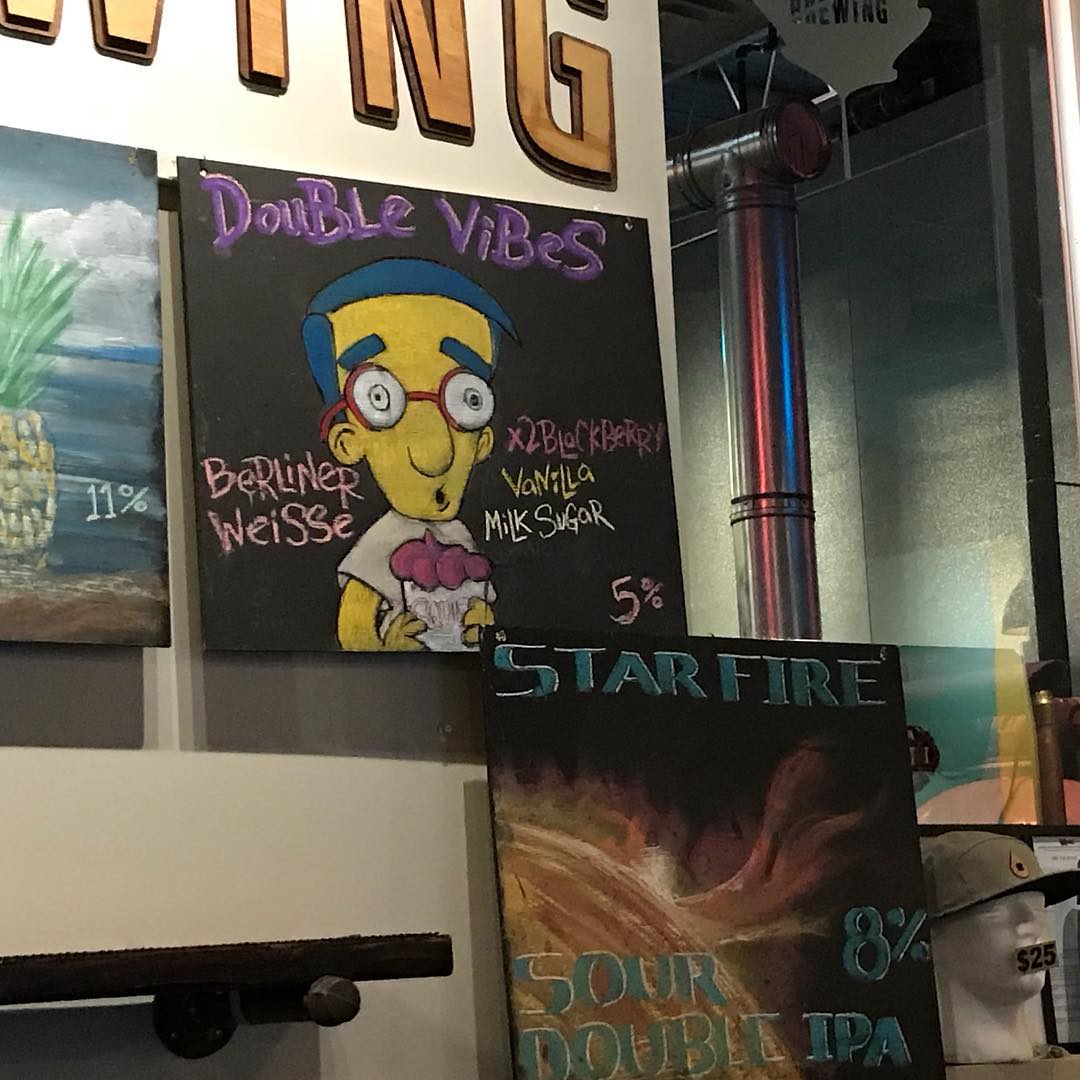 WING
BREWING
DOUBLE VIBES
BERLINER
WEISSE
X2 BLACKBERRY
VANILLA
MILK SUGAR
5%
11%
STAR FIRE
8%
SOUR
DOUBLE IPA
$25